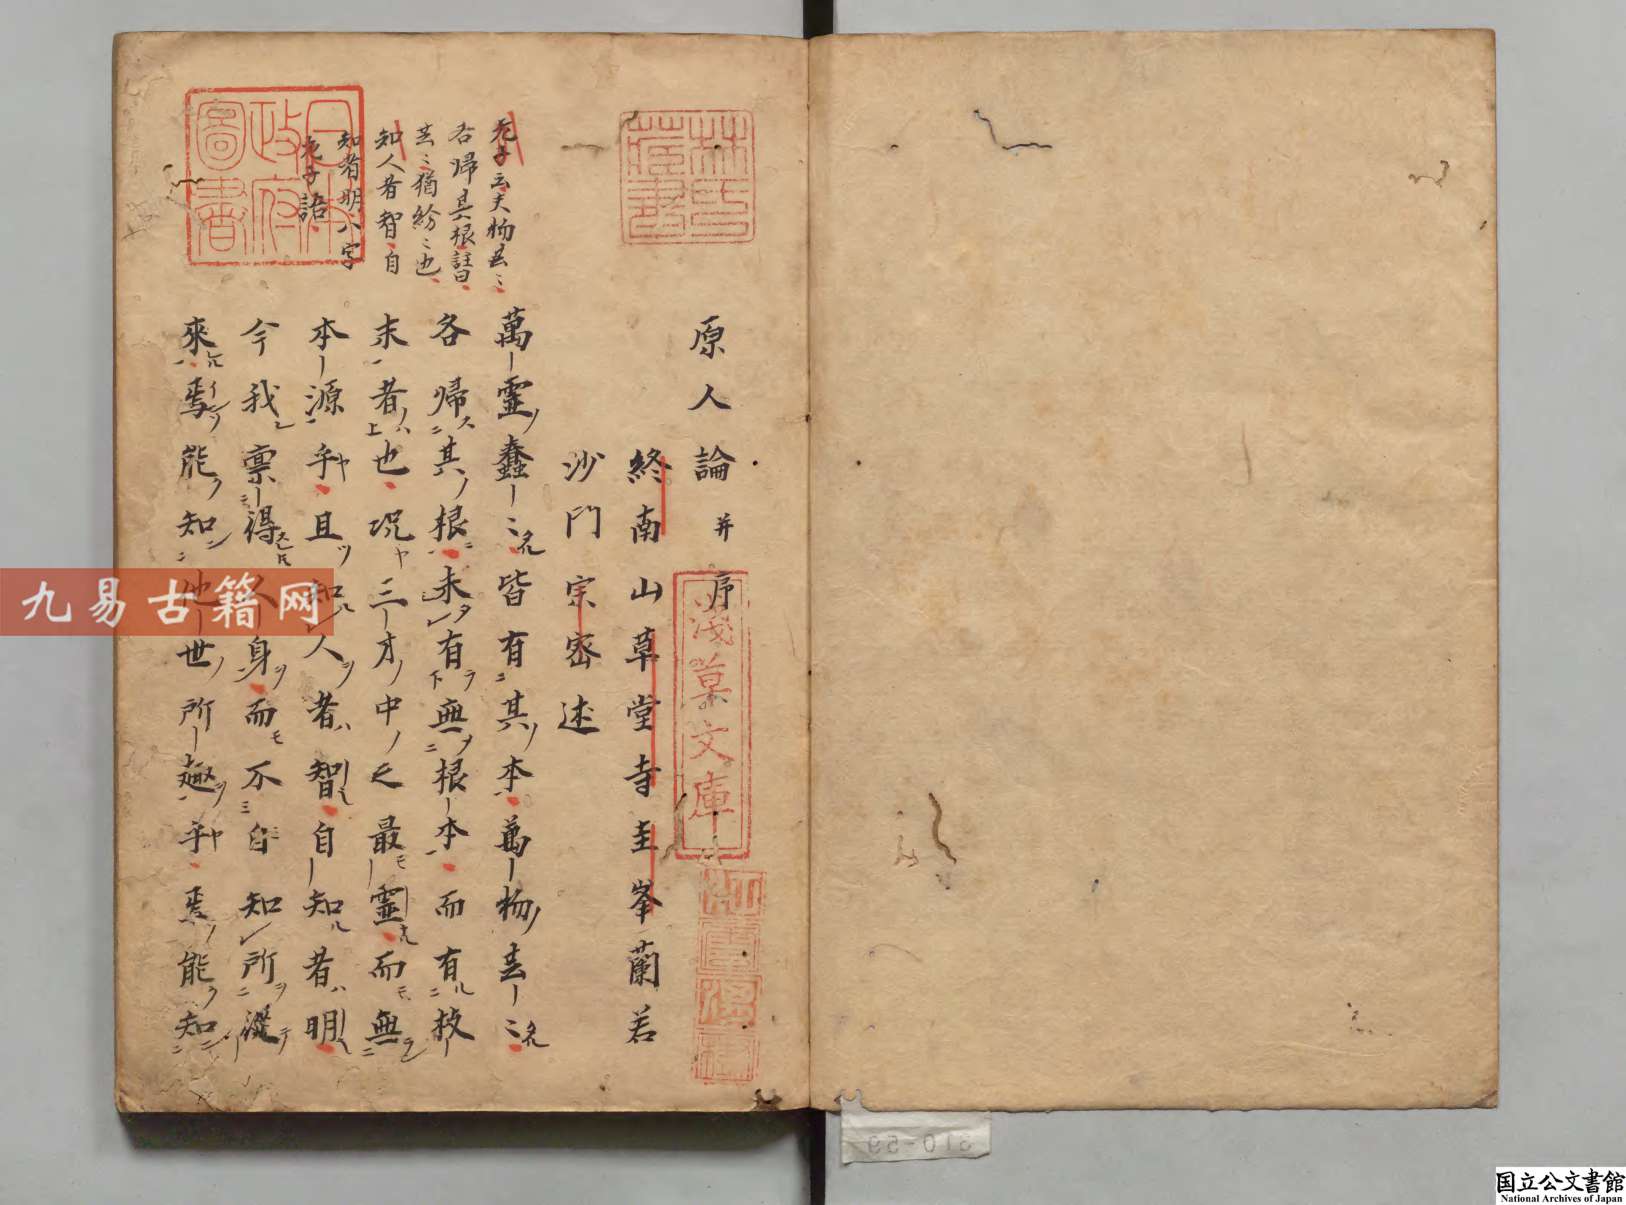 原人論并序
終南山草堂寺圭峯蘭若
沙門宗密述
萬靈蠢〻皆有其本萬物芸〻
各歸其根未有無根本而有枝
末者也況三才中之最靈而無
本源乎且知人者智自知者明
今我稟得人身而不自知所從
來焉能知他世所趣乎焉能知
老子云夫物芸〻
各歸其根註曰
芸〻猶紛〻也
知人者智自
知者明八字
老子語
林氏藏書
日本政府圖書
淺草文庫
九易古籍网
310-59
国立公文書館
National Archives of Japan